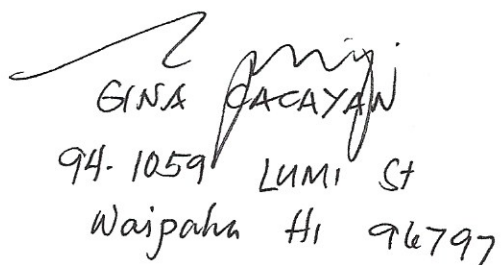 GINA CACAYAN
94-1059 LUMI St
Waipahu HI 96797